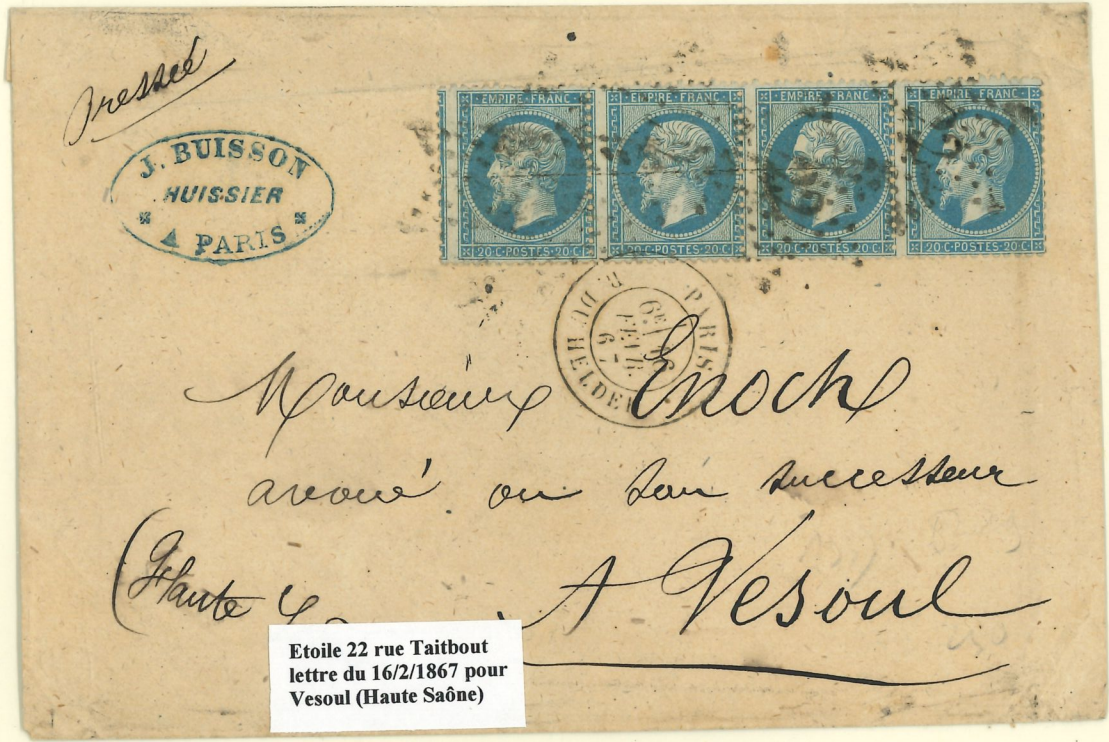 Pressée
J. BUISSON
HUISSIER
A PARIS
EMPIRE·FRANC
20·C·POSTES·20·C
EMPIRE·FRANC
20·C·POSTES·20·C
EMPIRE·FRANC
20·C·POSTES·20·C
EMPIRE·FRANC
20·C·POSTES·20·C
PARIS
R. DU HELDER
6E
16
FEVR
67
Monsieur Enoch
avoué ou son successeur
A Vesoul
(Haute S
Etoile 22 rue Taitbout
lettre du 16/2/1867 pour
Vesoul (Haute Saône)